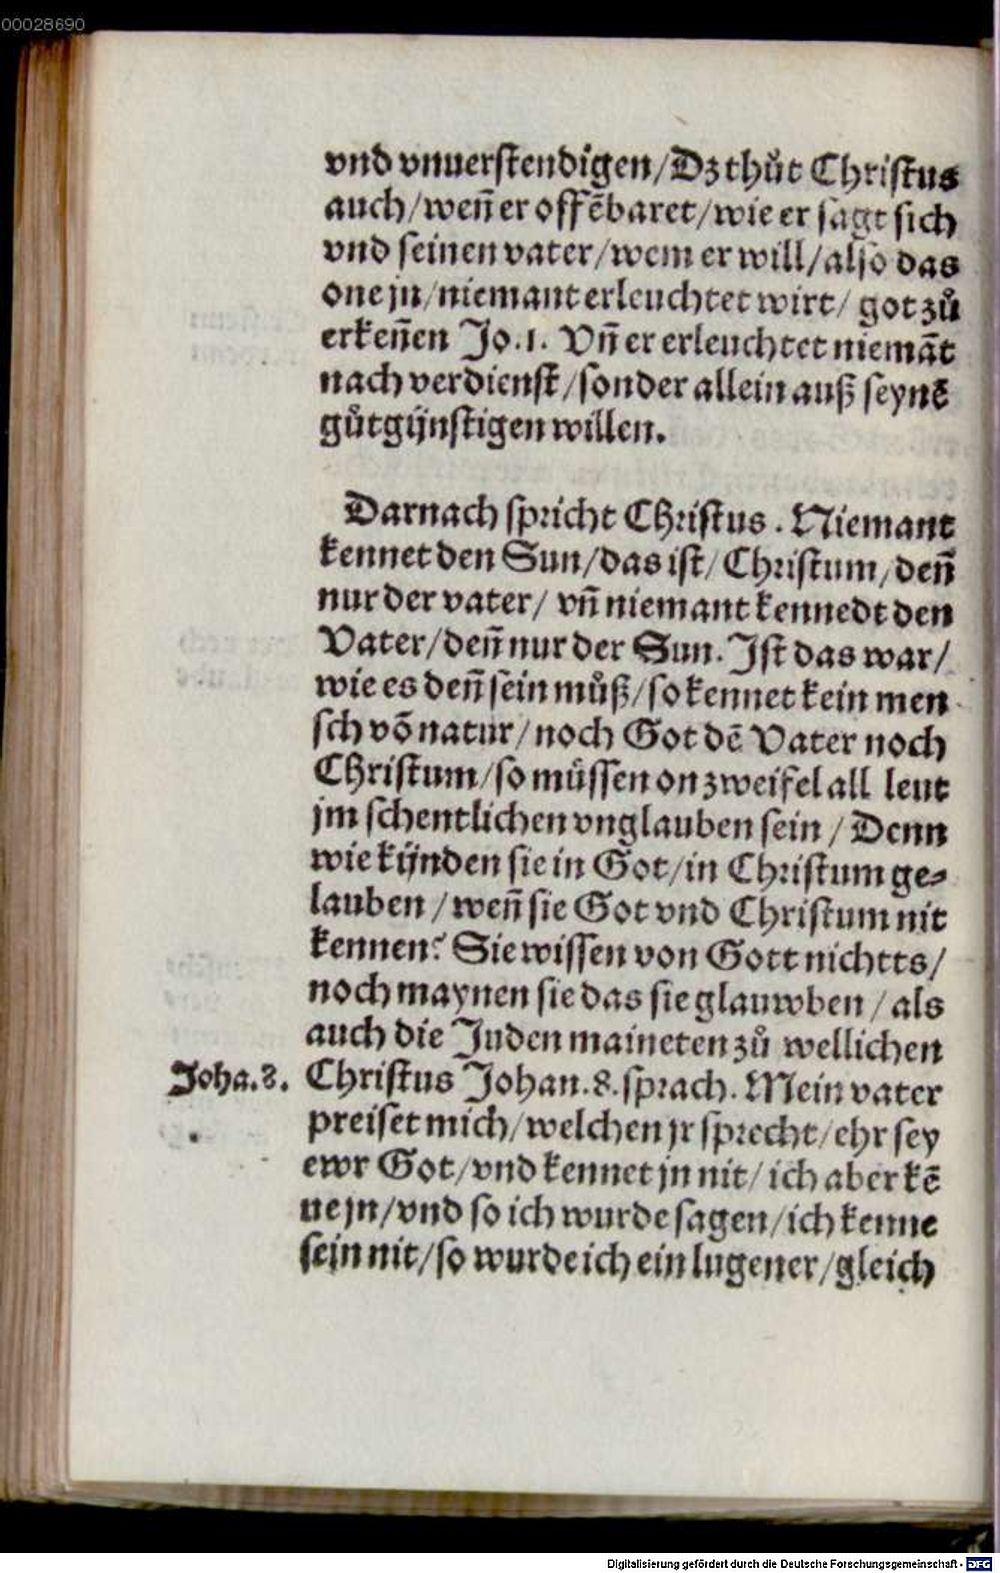 00028690
vnd vnuerstendigen/Dz thůt Christus
auch/weñ er offēbaret/wie er sagt sich
vnd seinen vater/wem er will/also das
one jn/niemant erleuchtet wirt/ got zů
erkeñen Jo.1. Vñ er erleuchtet niemãt
nach verdienst/sonder allein auß seynē
gůtgijnstigen willen.
Darnach spricht Christus. Niemant
kennet den Sun/das ist/ Christum/deñ
nur der vater/ vñ niemant kennedt den
Vater/deñ nur der Sun. Ist das war/
wie es deñ sein můß/so kennet kein men
sch võ natur/noch Got dē Vater noch
Christum/so můssen on zweifel all leut
jm schentlichen vnglauben sein / Denn
wie kijnden sie in Got/in Christum ge⸗
lauben /weñ sie Got vnd Christum nit
kennen? Sie wissen von Gott nichtts/
noch maynen sie das sie glauwben / als
auch die Juden maineten zů wellichen
Joha.8. Christus Johan.8.sprach. Mein vater
preiset mich/welchen jr sprecht/ehr sey
ewr Got/vnd kennet jn nit/ ich aber kē
ne jn/vnd so ich wurde sagen/ich kenne
sein nit/so wurde ich ein lugener/gleich
Digitalisierung gefördert durch die Deutsche Forschungsgemeinschaft - DFG